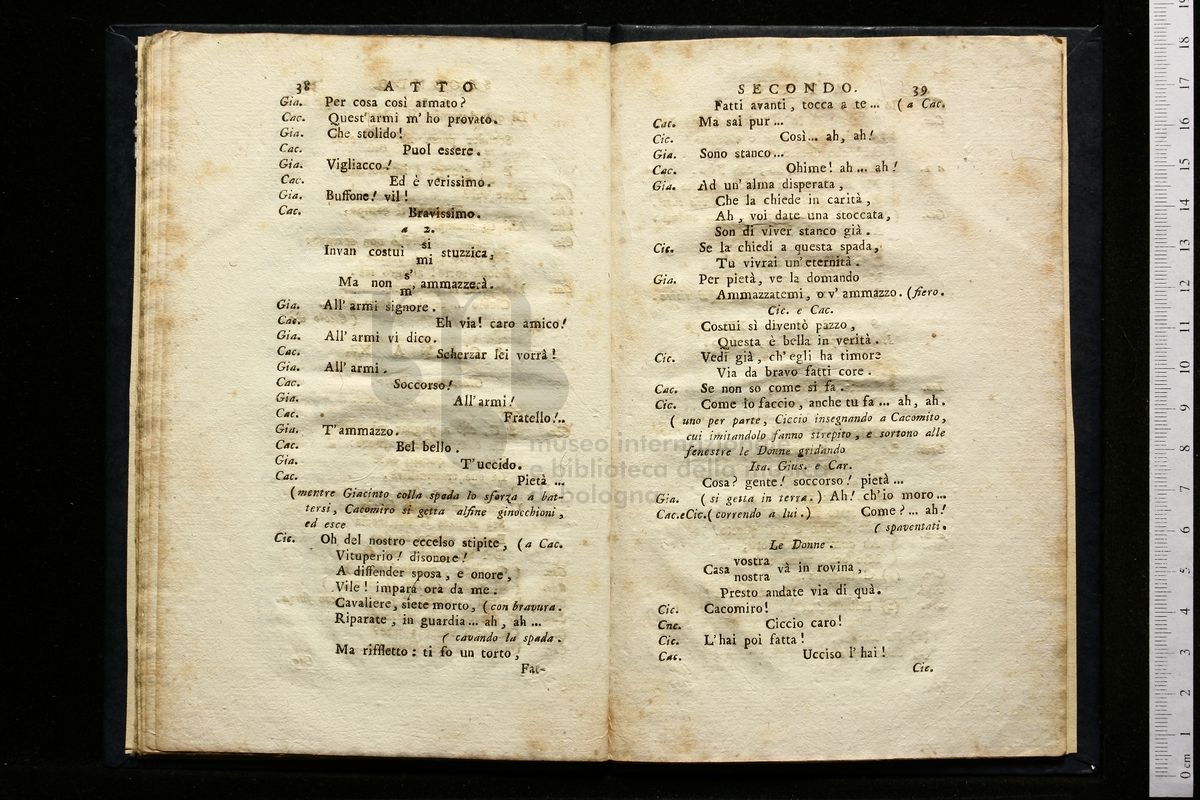 38 ATTO
Gia. Per cosa così armato?
Cac. Quest' armi m' ho provato.
Gia. Che stolido!
Cac. Puol essere.
Gia. Vigliacco!
Cac. Ed è verissimo.
Gia. Buffone! vil!
Cac. Bravissimo.
a 2.
si
Invan costui stuzzica,
mi
s'
Ma non ammazzerà.
m',
Gia. All' armi signore.
Cac. Eh via! caro amico!
Gia. All' armi vi dico.
Cac. Scherzar lei vorrà!
Gia. All' armi.
Cac. Soccorso!
Gia. All' armi!
Cac. Fratello!..
Gia. T' ammazzo.
Cac. Bel bello.
Gia. T' uccido.
Cac. Pietà ...
(mentre Giacinto colla spada lo sforza a bat-
tersi, Cacomiro si getta alfine ginocchioni,
ed esce
Cic. Oh del nostro eccelso stipite, (a Cac.
Vituperio! disonore!
A diffender sposa, e onore,
Vile! impara ora da me.
Cavaliere, siete morto, (con bravura.
Riparate, in guardia ... ah, ah ...
( cavando la spada.
Ma riffletto: ti fo un torto,
Fat-
SECONDO. 39
Fatti avanti, tocca a te ... (a Cac.
Cac. Ma sai pur ...
Cic. Così ... ah, ah!
Gia. Sono stanco ...
Cac. Ohime! ah ... ah!
Gia. Ad un' alma disperata,
Che la chiede in carità,
Ah, voi date una stoccata,
Son di viver stanco già.
Cic. Se la chiedi a questa spada,
Tu vivrai un' eternità.
Gia. Per pietà, ve la domando
Ammazzatemi, o v' ammazzo. (fiero.
Cic. e Cac.
Costui sì diventò pazzo,
Questa è bella in verità.
Cic. Vedi già, ch' egli ha timore
Via da bravo fatti core.
Cac. Se non so come si fa.
Cic. Come io faccio, anche tu fa ... ah, ah.
( uno per parte, Ciccio insegnando a Cacomito,
cui imitandolo fanno strepito, e sortono alle
fenestre le Donne gridando
Isa. Gius. e Car.
Cosa? gente! soccorso! pietà ...
Gia. ( si getta in terra.) Ah! ch' io moro ...
Cac.eCic. ( correndo a lui.) Come? ... ah!
( spaventati.
Le Donne.
vostra
Casa và in rovina,
nostra
Presto andate via di quà.
Cic. Cacomiro!
Cnc. Ciccio caro!
Cic. L' hai poi fatta!
Cac. Ucciso l' hai!
Cic.
museo internazionale
e biblioteca della musica
bologna
0 cm 1 2 3 4 5 6 7 8 9 10 11 12 13 14 15 16 17 18